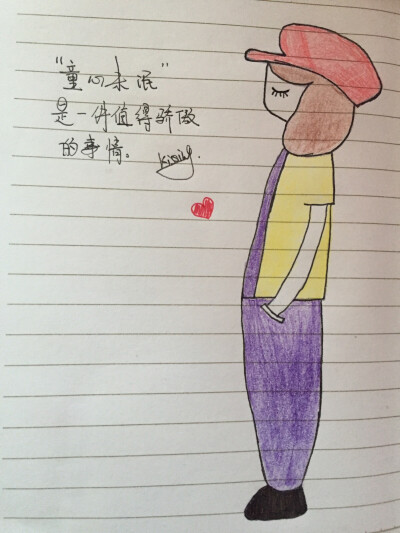 "童心未泯"
是一件值得骄傲
的事情。